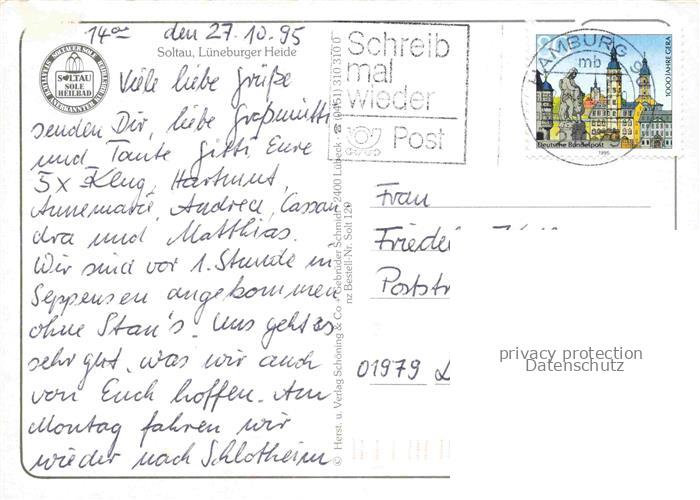 14⁰⁰ den 27.10.95
Soltau, Lüneburger Heide
SOLTAU
SOLE
HEILBAD
Viele liebe Grüße
senden Dir, liebe Großmutti
und Tante Gitti Eure
5x Klug, Hartmut,
Annemarie, Andrea, Cassan
dra und Matthias.
Wir sind vor 1. Stunde in
Seppensen angekommen
ohne Stau's. Uns geht es
sehr gut, was wir auch
von Euch hoffen. Am
Montag fahren wir
wieder nach Schlotheim
© Herst. u. Verlag Schöning & Co · Gebrüder Schmidt · 2400 Lübeck · ☎ (0451) 310 310 0
nz Bestell-Nr. Solt 129
Schreib
mal
wieder
Post
HAMBURG
mb
1000 JAHRE GERA
Deutsche Bundespost
1995
Frau
Friede
Postst
01979
privacy protection
Datenschutz